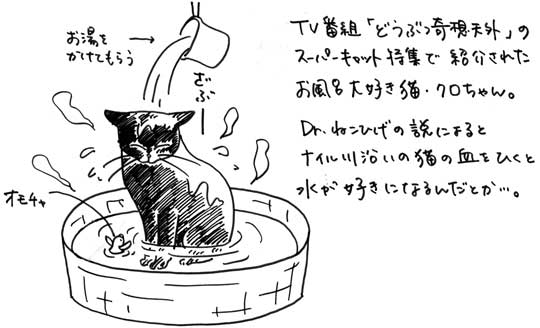 お湯を
かけてもらう
ざぶー
オモチャ
TV番組「どうぶつ奇想天外」の
スーパーキャット特集で紹介された
お風呂大好き猫・クロちゃん。
Dr.ねこひげの説によると
ナイル川沿いの猫の血をひくと
水が好きになるんだとか…。